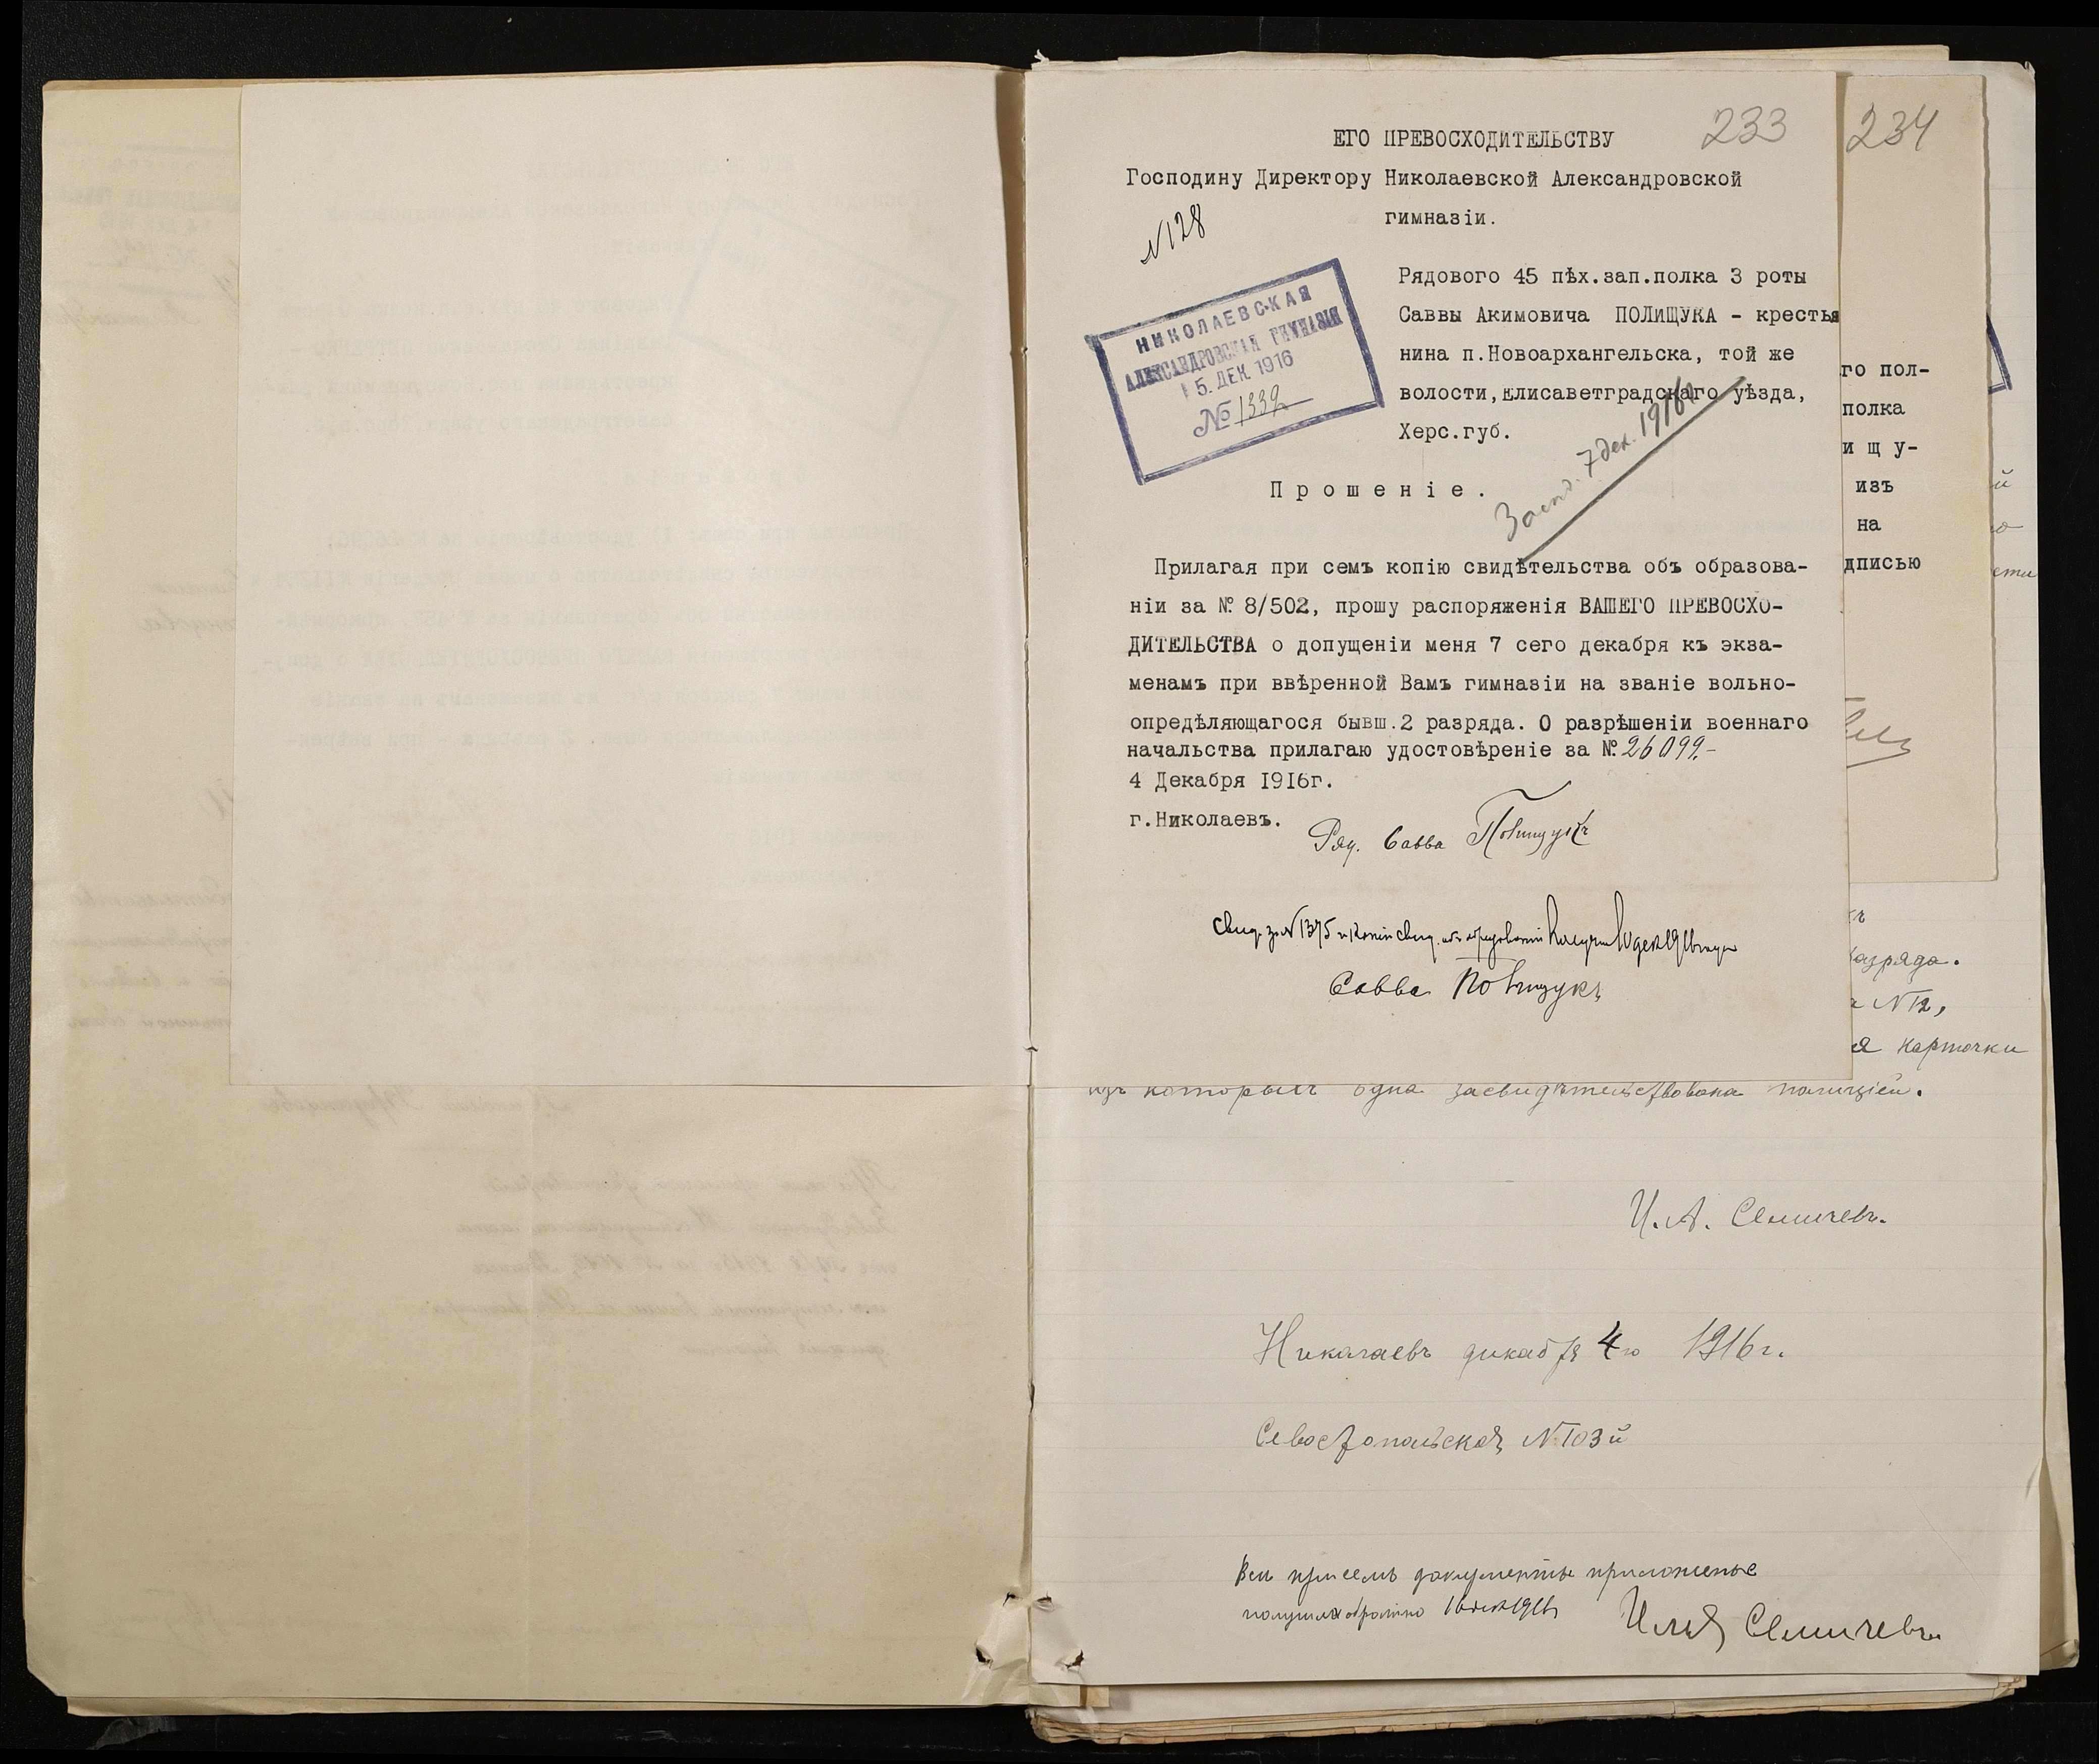 233
234
ЕГО ПРЕВОСХОДИТЕЛЬСТВУ
Господину Директору Николаевской Александровской
гимназіи.
№128
НИКОЛАЕВСКАЯ
АЛЕКСАНДРОВСКАЯ ГИМНАЗІЯ
5. ДЕК. 1916
№ 1339
Рядового 45 пѣх.зап.полка 3 роты
Саввы Акимовича ПОЛИЩУКА - крестья
нина п.Новоархангельска, той же
волости,Елисаветградскаго уѣзда,
Херс.губ.
7 дек. 1916г.
Прошеніе.
Прилагая при семъ копію свидѣтельства объ образова-
ніи за № 8/502, прошу распоряженія ВАШЕГО ПРЕВОСХО-
ДИТЕЛЬСТВА о допущеніи меня 7 сего декабря къ экза-
менамъ при ввѣренной Вамъ гимназіи на званіе вольно-
опредѣляющагося бывш.2 разряда. О разрѣшеніи военнаго
начальства прилагаю удостовѣреніе за № 26099.-
4 Декабря 1916г.
г.Николаевъ.
Ряд. Савва Полищукъ
Свид. за №1375 и копію свид. объ образованіи получилъ 10 дек 1916 года
Савва Полищукъ
го пол-
полка
и щ у-
изъ
на
дписью
азряда.
№12,
я карточки
изъ которыхъ одна засвидѣтельствована полиціей.
И.А. Семичевъ.
Николаевъ декабря 4го 1916г.
Севастопольская №103й
Всѣ при семъ документы приложеные
получилъ обратно 16 дек 1916г
Илья Семичевъ